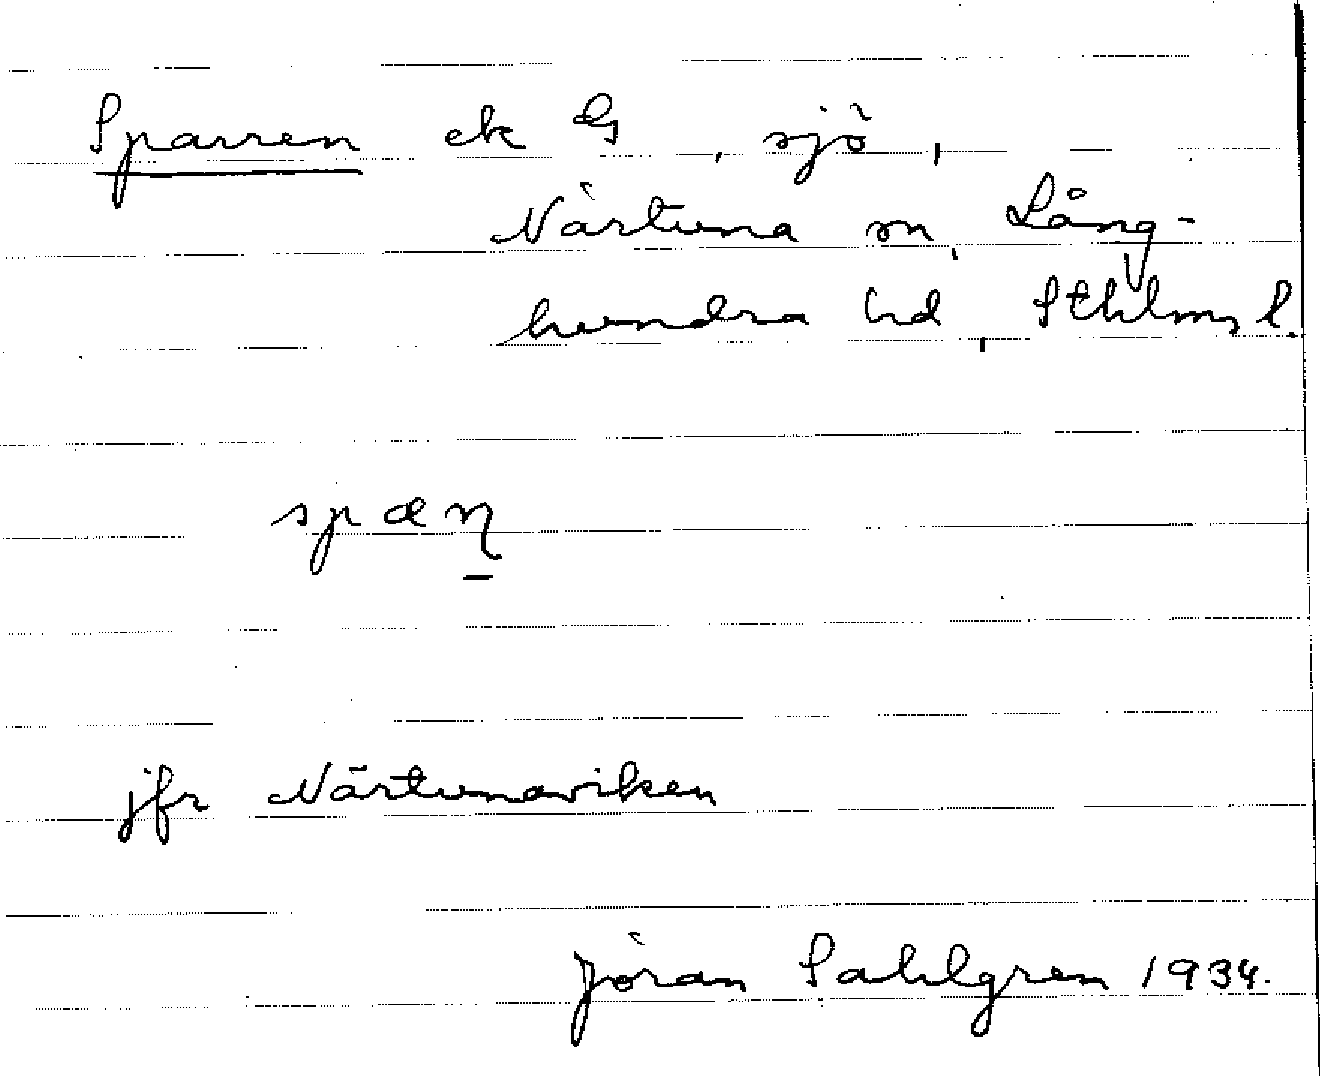 Sparren ek G, sjö,
Närtuna sn, Lång-
hundra hd, Sthlms l.
spæn
jfr Närtunaviken
Jöran Sahlgren 1934.